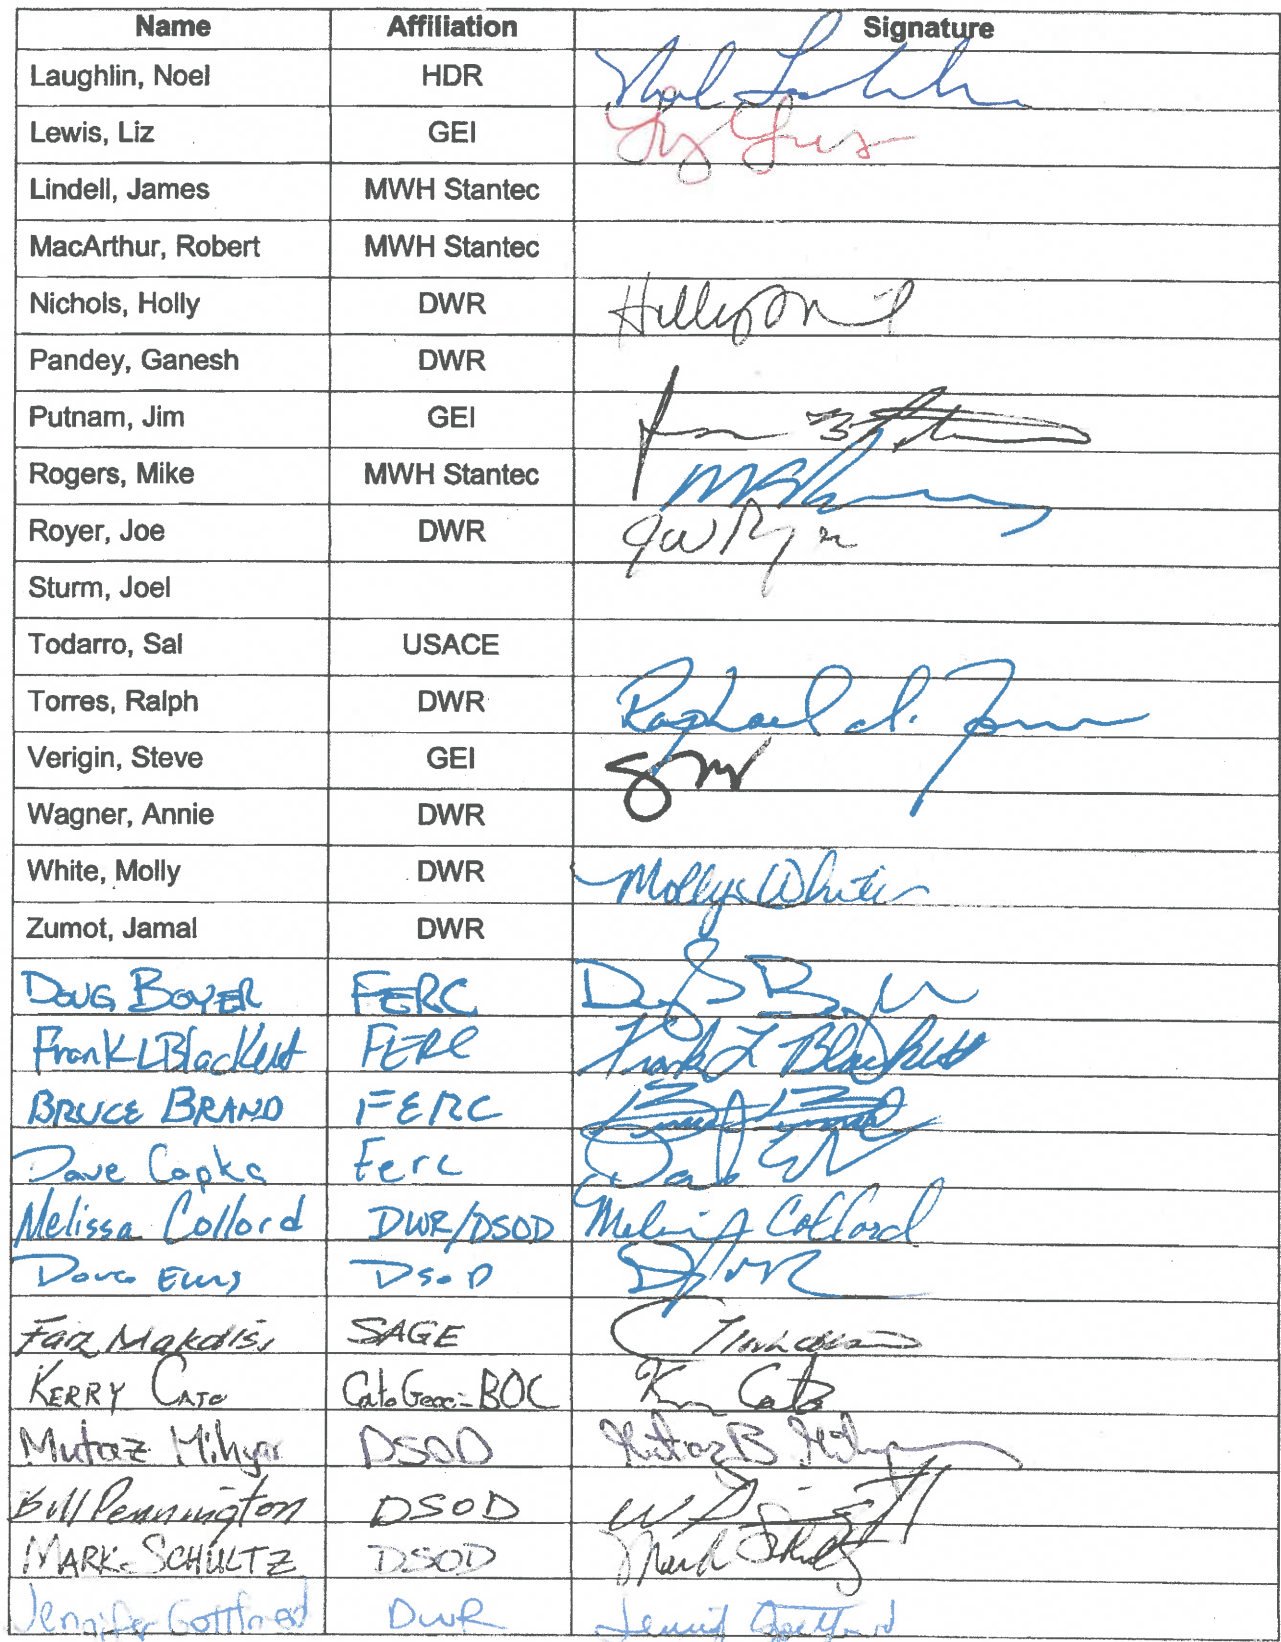 Name Affiliation Signature
Laughlin, Noel HDR
Lewis, Liz GEI
Lindell, James MWH Stantec
MacArthur, Robert MWH Stantec
Nichols, Holly DWR
Pandey, Ganesh DWR
Putnam, Jim GEI
Rogers, Mike MWH Stantec
Royer, Joe DWR
Sturm, Joel
Todarro, Sal USACE
Torres, Ralph DWR Raphael A. Torres
Verigin, Steve GEI
Wagner, Annie DWR
White, Molly DWR Molly White
Zumot, Jamal DWR
DOUG BOYER FERC
Frank L Blackett FERC Frank L Blackett
BRUCE BRAND FERC
Dave Capka Ferc
Melissa Collord DWR/DSOD Melissa Collord
DSOD
Faiz Makdisi SAGE
KERRY CATO Cato Geo - BOC Cato
Mutaz Mihyar DSOD Mutaz B. Mihyar
Bill Pennington DSOD
MARK SCHULTZ DSOD Mark Schultz
Jennifer Gottfried DWR Gottfried